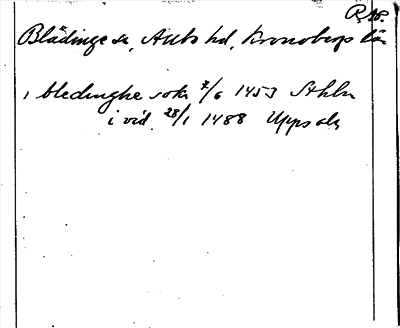 R. Ap.
Blädinge sn, Allbo hd, Kronobergs län
i bledinghe sokn 7/6 1453 Sthlm
i vid. 28/1 1488 Uppsala